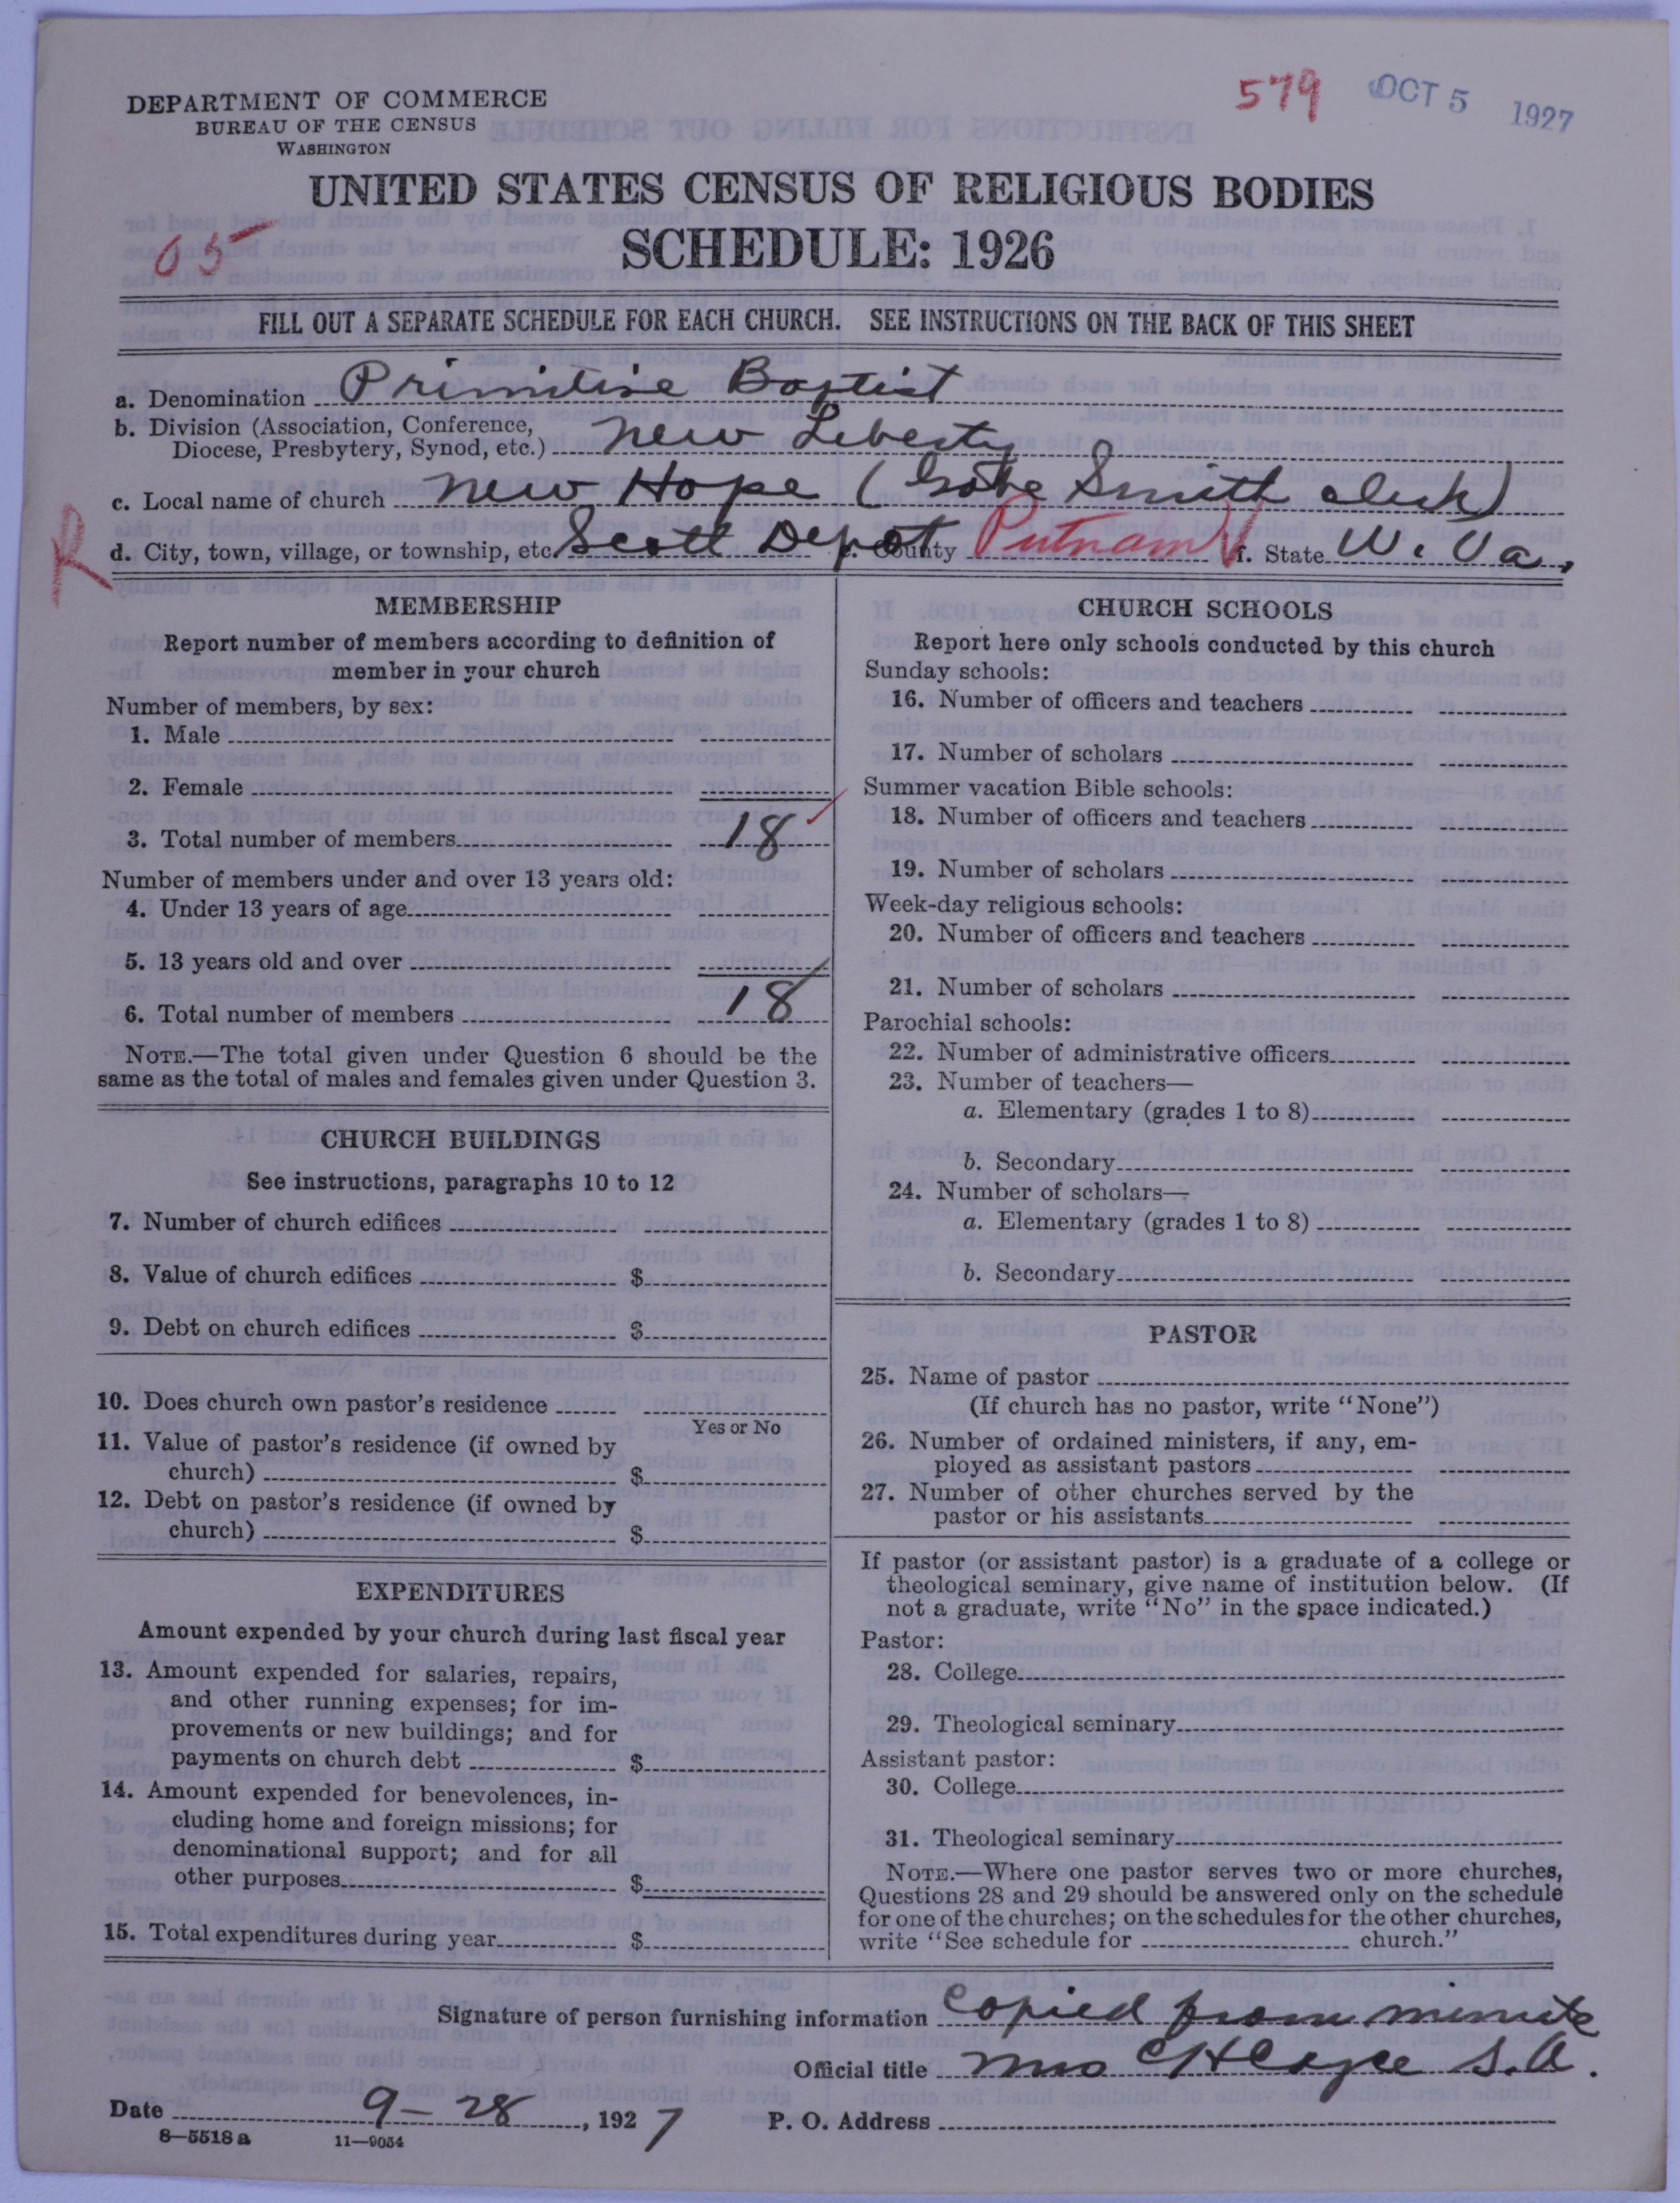 579 OCT 5 1927
DEPARTMENT OF COMMERCE
BUREAU OF THE CENSUS
WASHINGTON
UNITED STATES CENSUS OF RELIGIOUS BODIES
05
SCHEDULE: 1926
FILL OUT A SEPARATE SCHEDULE FOR EACH CHURCH. SEE INSTRUCTIONS ON THE BACK OF THIS SHEET
a. Denomination Primitive Baptist
b. Division (Association, Conference,
Diocese, Presbytery, Synod, etc.) New Liberty
c. Local name of church New Hope ( Smith clerk)
R
d. City, town, village, or township, etc. Scott Depot e. County Putnam f. State W. Va.
MEMBERSHIP
Report number of members according to definition of
member in your church
Number of members, by sex:
1. Male
2. Female
3. Total number of members 18
Number of members under and over 13 years old:
4. Under 13 years of age
5. 13 years old and over
6. Total number of members 18
NOTE.—The total given under Question 6 should be the
same as the total of males and females given under Question 3.
CHURCH BUILDINGS
See instructions, paragraphs 10 to 12
7. Number of church edifices
8. Value of church edifices $
9. Debt on church edifices $
10. Does church own pastor's residence
Yes or No
11. Value of pastor's residence (if owned by
church) $
12. Debt on pastor's residence (if owned by
church) $
EXPENDITURES
Amount expended by your church during last fiscal year
13. Amount expended for salaries, repairs,
and other running expenses; for im-
provements or new buildings; and for
payments on church debt $
14. Amount expended for benevolences, in-
cluding home and foreign missions; for
denominational support; and for all
other purposes $
15. Total expenditures during year $
CHURCH SCHOOLS
Report here only schools conducted by this church
Sunday schools:
16. Number of officers and teachers
17. Number of scholars
Summer vacation Bible schools:
18. Number of officers and teachers
19. Number of scholars
Week-day religious schools:
20. Number of officers and teachers
21. Number of scholars
Parochial schools:
22. Number of administrative officers
23. Number of teachers—
a. Elementary (grades 1 to 8)
b. Secondary
24. Number of scholars—
a. Elementary (grades 1 to 8)
b. Secondary
PASTOR
25. Name of pastor
(If church has no pastor, write "None")
26. Number of ordained ministers, if any, em-
ployed as assistant pastors
27. Number of other churches served by the
pastor or his assistants
If pastor (or assistant pastor) is a graduate of a college or
theological seminary, give name of institution below. (If
not a graduate, write "No" in the space indicated.)
Pastor:
28. College
29. Theological seminary
Assistant pastor:
30. College
31. Theological seminary
NOTE.—Where one pastor serves two or more churches,
Questions 28 and 29 should be answered only on the schedule
for one of the churches; on the schedules for the other churches,
write "See schedule for church."
Signature of person furnishing information Copied from minute
Official title Mrs C H S. A.
Date 9-28, 1927 P. O. Address
8—5518 a 11—9054